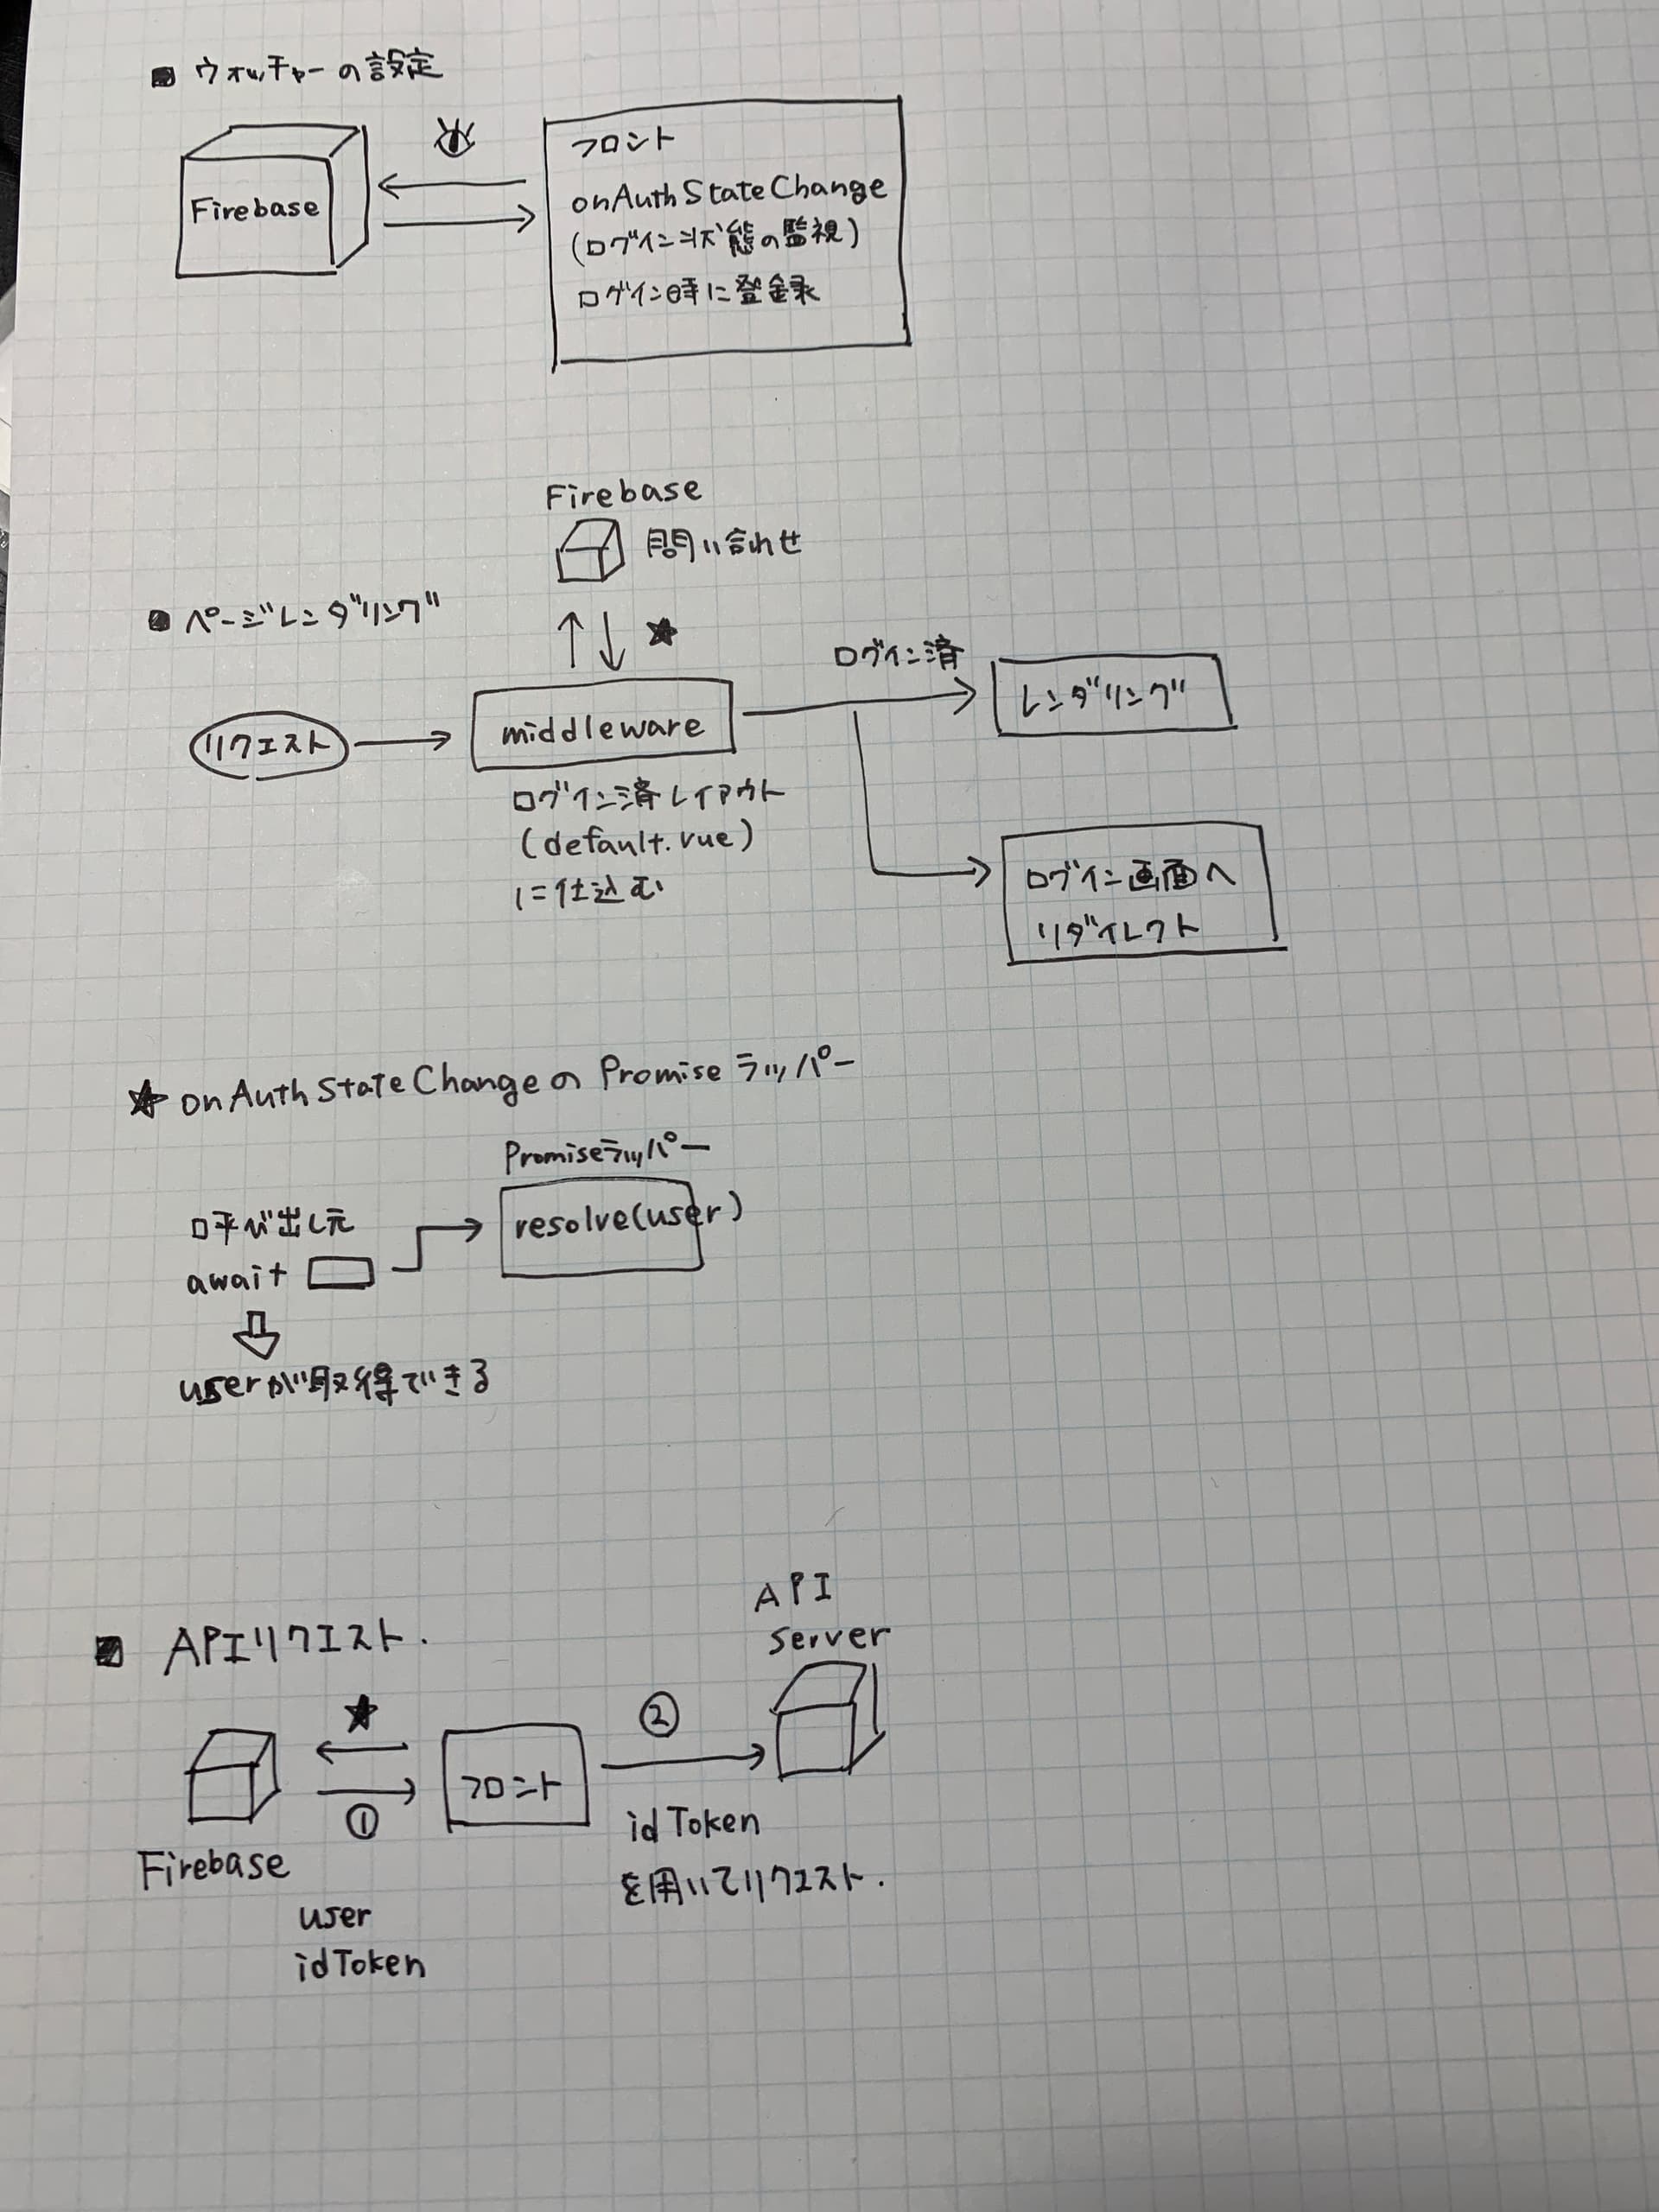 ■ ウォッチャーの設定
Firebase
フロント
onAuthStateChange
(ログイン状態の監視)
ログイン時に登録
Firebase
問い合わせ
■ ページレンダリング
★
ログイン済
リクエスト
middleware
レンダリング
ログイン済レイアウト
(default.vue)
に仕込む
ログイン画面へ
リダイレクト
★ onAuthStateChangeのPromiseラッパー
Promiseラッパー
呼び出し元
resolve(user)
await
userが取得できる
■ APIリクエスト.
API
server
★
②
フロント
①
Firebase
user
idToken
idToken
を用いてリクエスト.